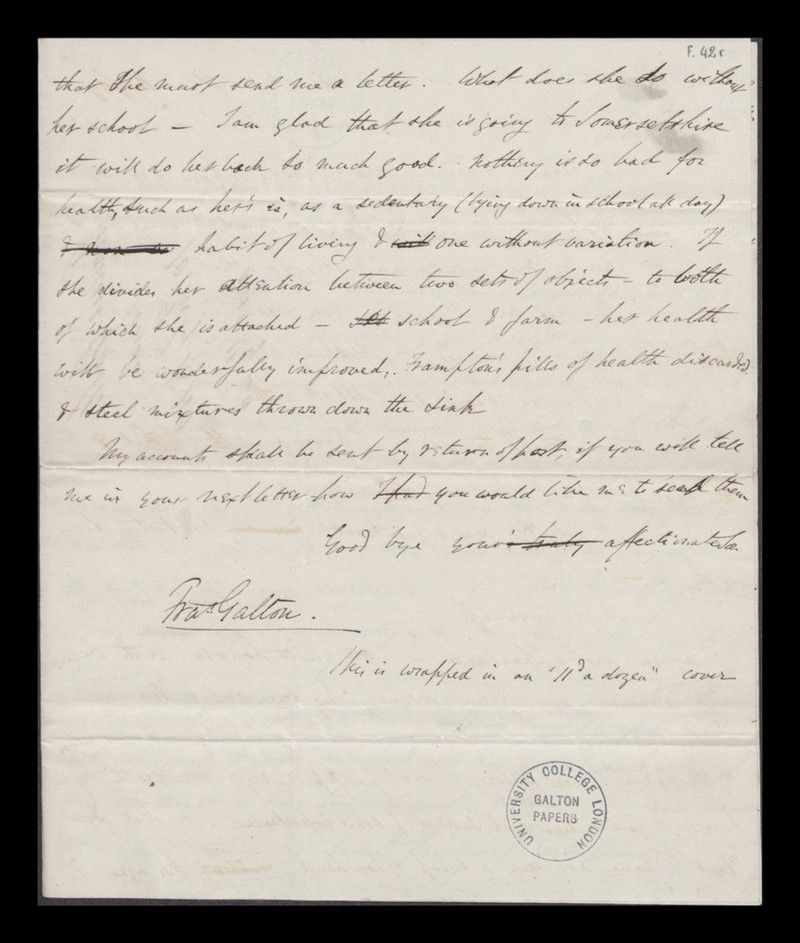 F. 42r
that She must send me a letter. What does she do without
her school — I am glad that she is going to Somersetshire
it will do her back so much good. Nothing is so bad for
health, such as her's is, as a sedentary (lying down in school all day)
& habit of living & will one without variation. If
she divides her attention between two sets of objects — to both
of which she is attached — school & farm — her health
will be wonderfully improved,. Frampton's pills of health discarded
& steel mixtures thrown down the sink
My accounts shall be sent by return of post, if you will tell
me in your next letter how I had you would like me to send them
Good bye your's truly affectionately
Fras Galton.
This is wrapped in an "11d a dozen" cover
UNIVERSITY COLLEGE LONDON
GALTON
PAPERS